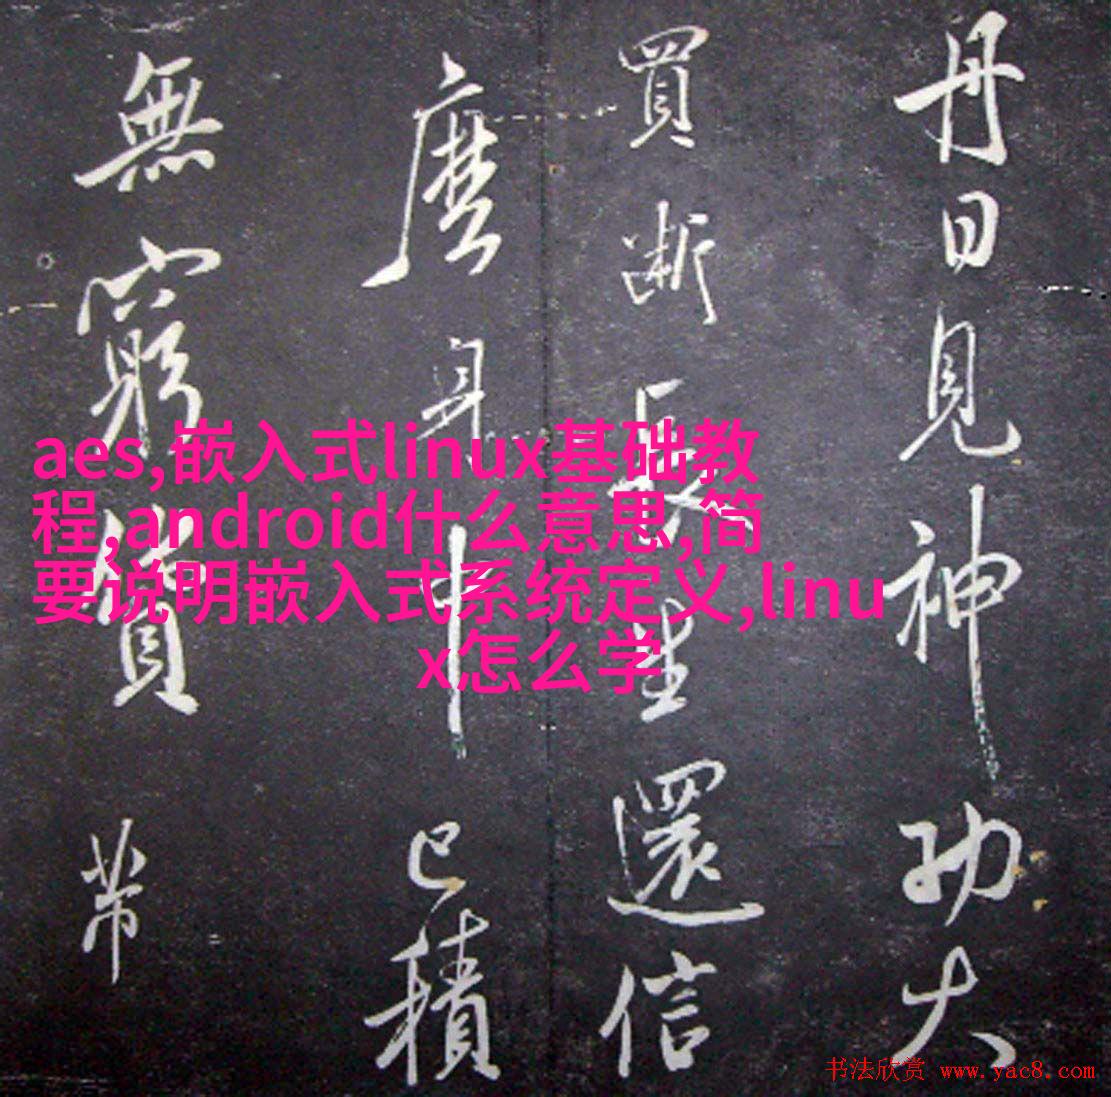 丹日見神功大
買斷長生還信
麼身中已積
無窮貨帶
aes,嵌入式linux基础教
程,android什么意思,简
要说明嵌入式系统定义,linu
x怎么学
书法欣赏 www.yac8.com